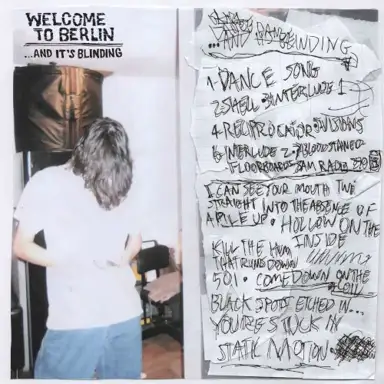 WELCOME
TO BERLIN
...AND IT'S BLINDING
...AND BLINDING
1 · DANCE SONG
2 SHELL · 3 INTERLUDE 1
4 RECIPROCATOR ·
6 INTERLUDE 2 · 7 BLOOD STAINED
FLOORBOARDS · 8 AM RADIO
I CAN SEE YOUR MOUTH
STRAIGHT INTO THE ABSENCE OF
A PILE UP · HOLLOW ON THE
INSIDE
KILL THE HUM
THAT RUNS DOWN
501 · COMEDOWN ON THE
BLACK SPOTS ETCHED IN...
YOU'RE STUCK IN
STATIC MOTION